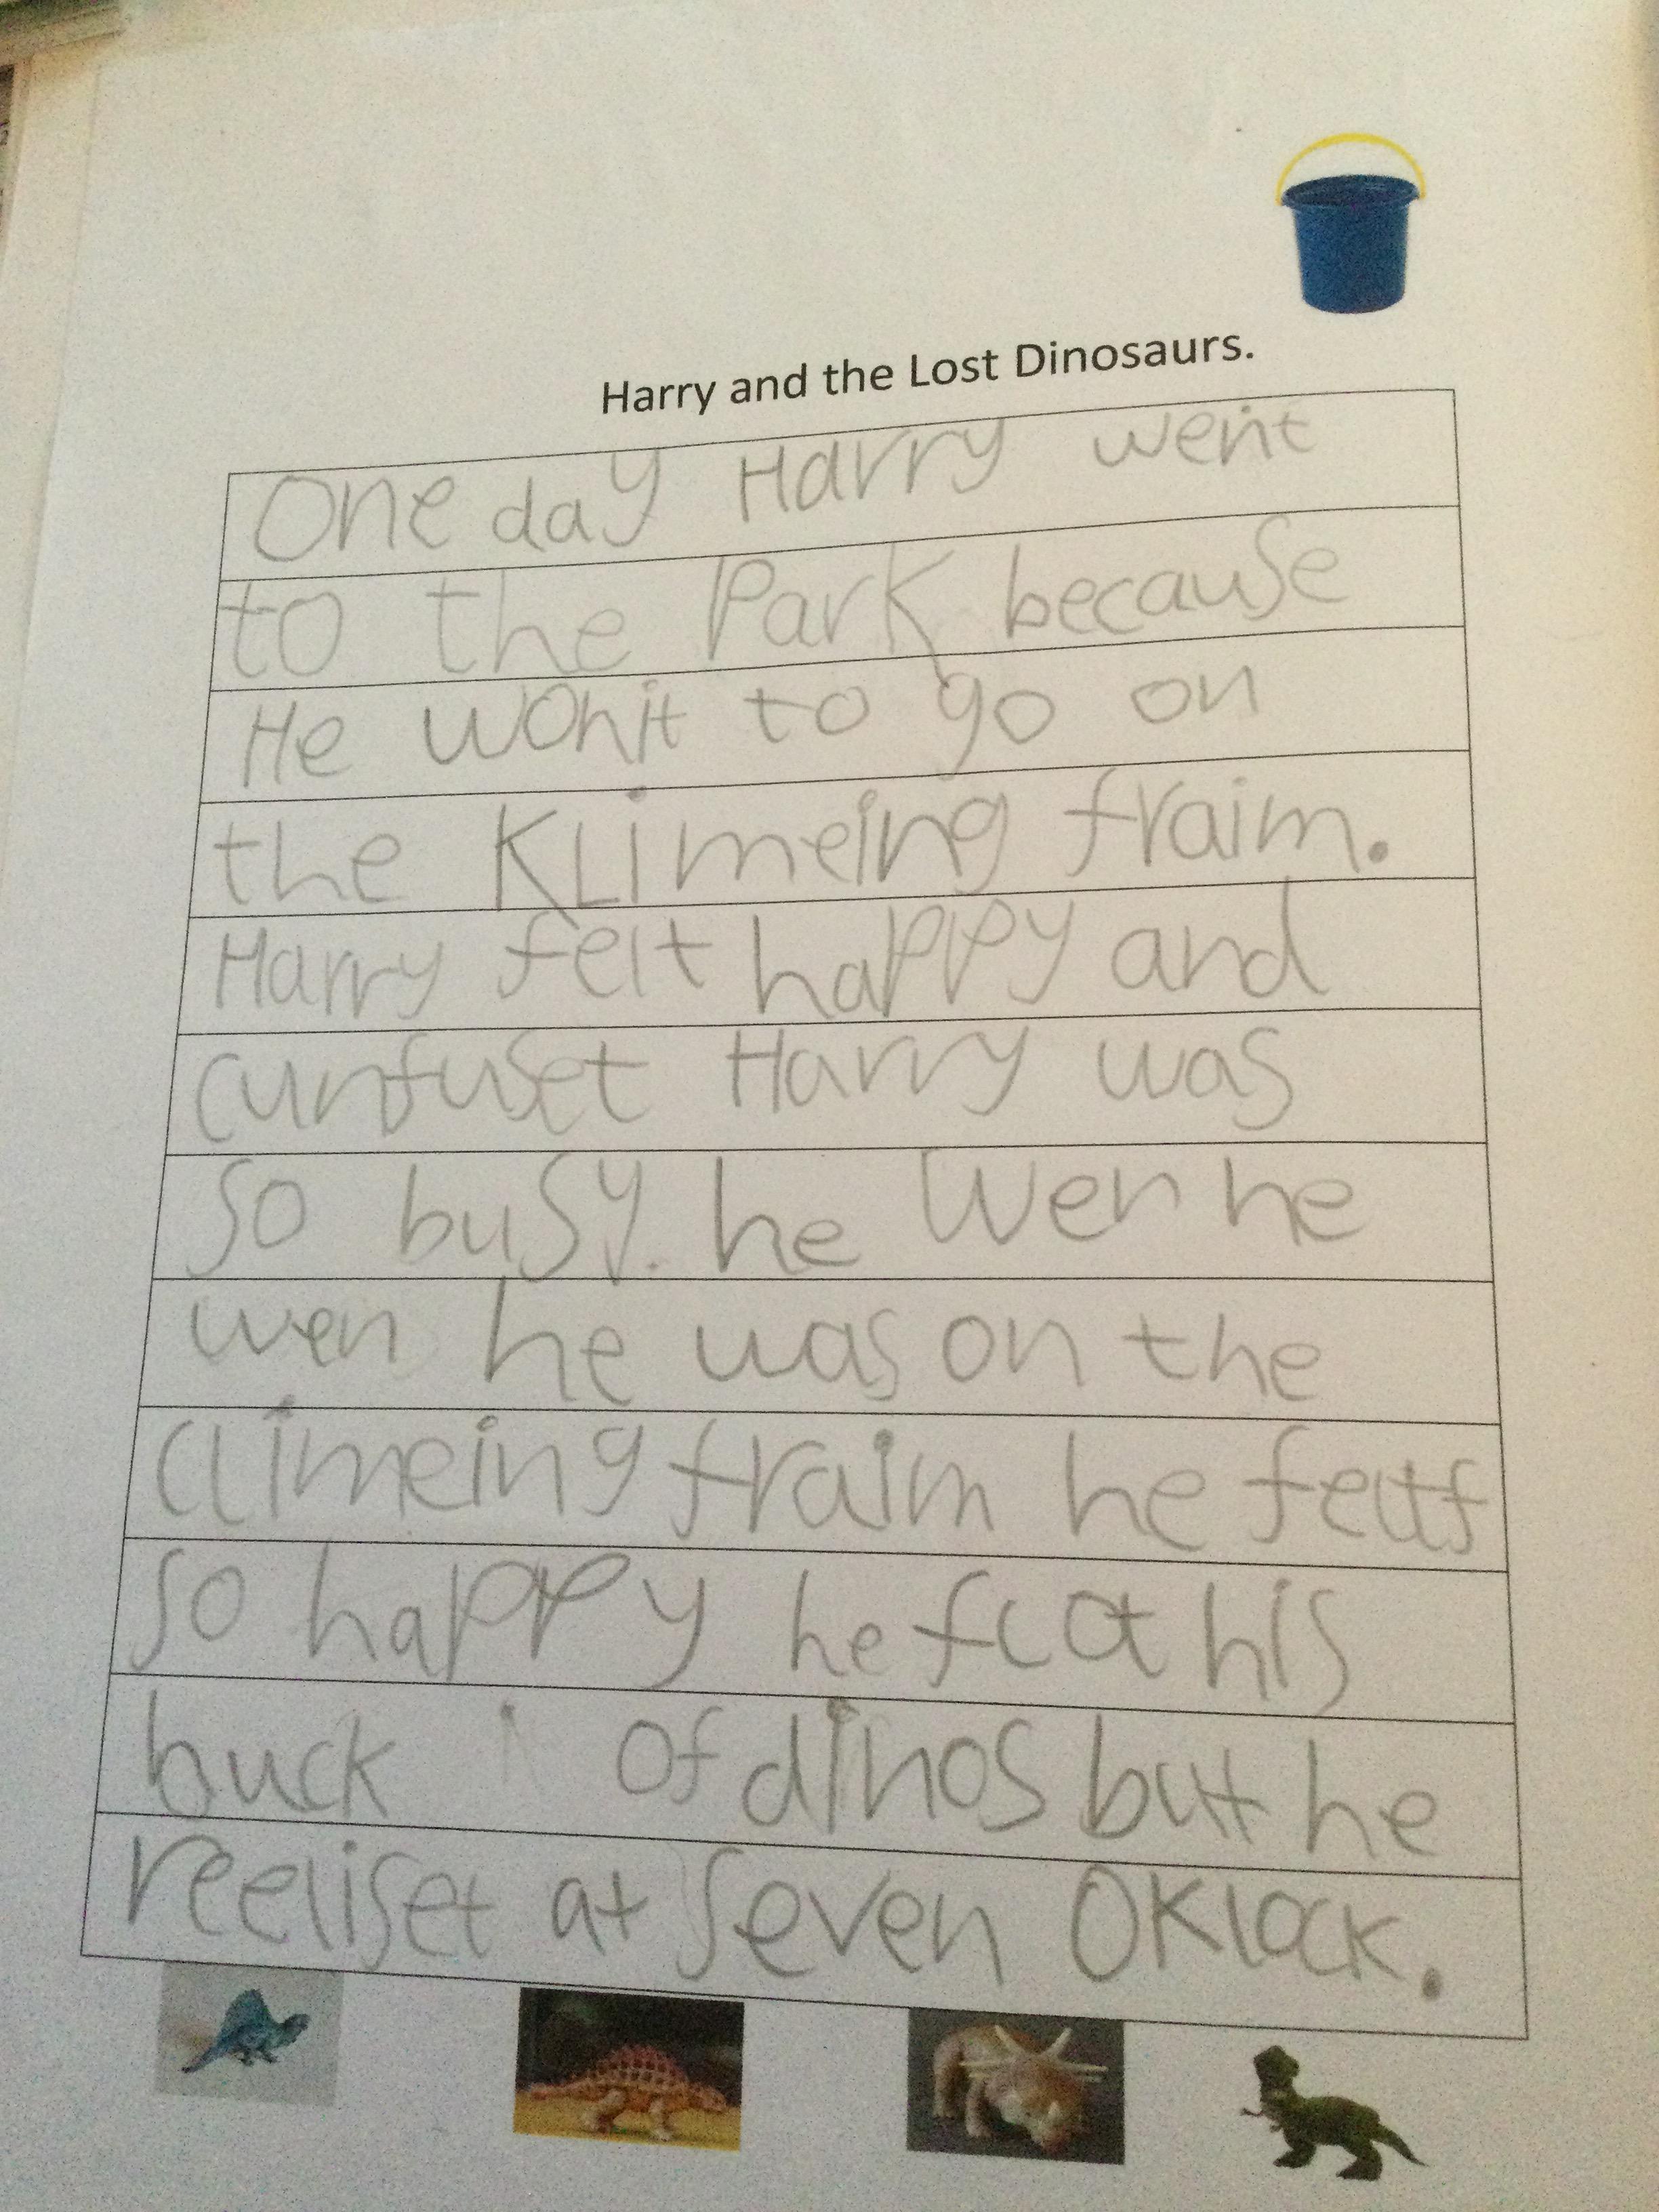 Harry and the Lost Dinosaurs.
One day Harry went
to the Park because
He wonit to go on
the KLimeing fraim.
Harry felt happy and
cunfuset Harry was
so busy. he Wen he
wen he was on the
climeing fraim he felt
so happy he his
buck of dinos but he
reeliset at seven OKlock.